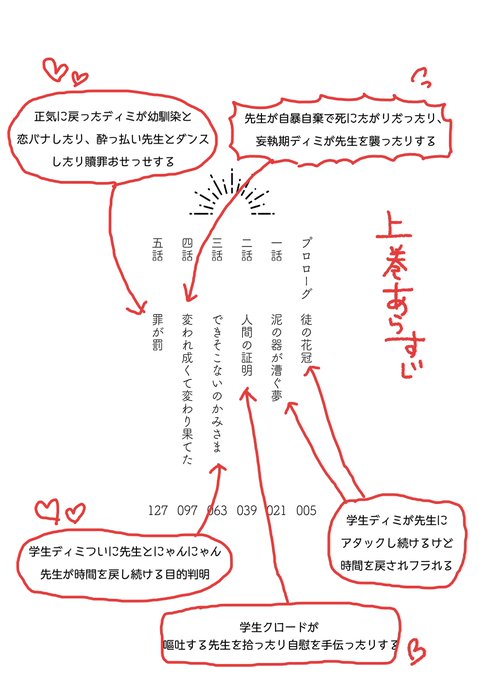 正気に戻ったディミが幼馴染と
恋バナしたり、酔っ払い先生とダンス
したり贖罪おせっせする
先生が自暴自棄で死にたがりだったり、
妄執期ディミが先生を襲ったりする
上巻あらすじ
プロローグ 徒の花冠 005
一話 泥の器が漕ぐ夢 021
二話 人間の証明 039
三話 できそこないのかみさま 063
四話 変われ成くて変わり果てた 097
五話 罪が罰 127
学生ディミが先生に
アタックし続けるけど
時間を戻されフラれる
学生ディミついに先生とにゃんにゃん
先生が時間を戻し続ける目的判明
学生クロードが
嘔吐する先生を拾ったり自慰を手伝ったりする